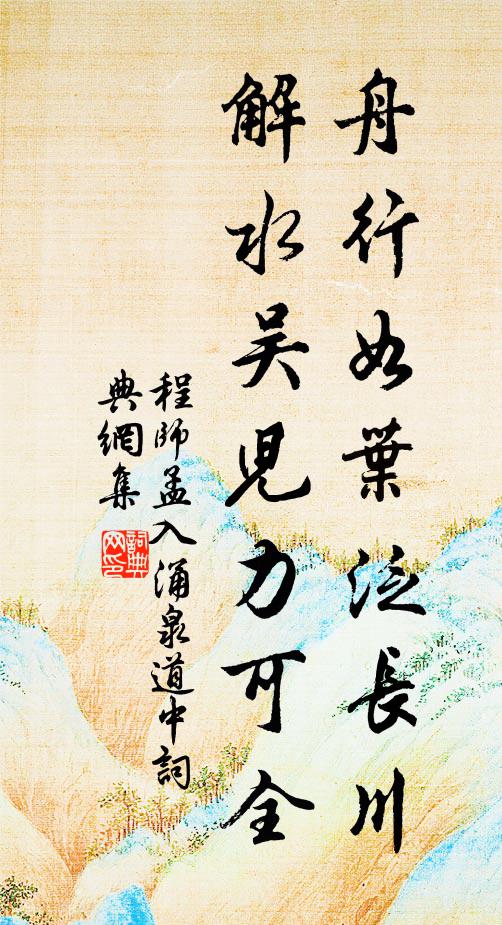 舟行如葉泛長川
解水吴児力可全
程師孟入涌泉道中詞
典網集
詞典
网印